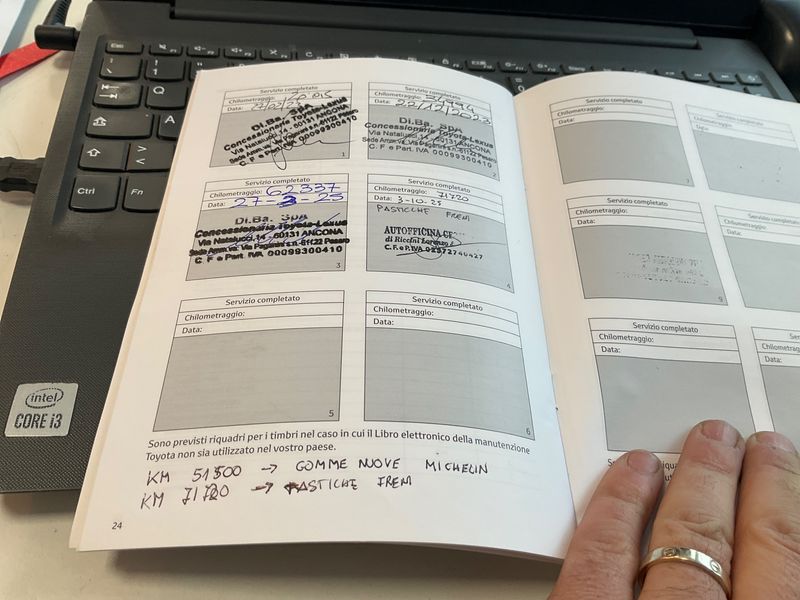 Servizio completato
Chilometraggio:
Data:
Di.Ba. SPA
Concessionaria Toyota-Lexus
Via Natalucci,14 - 60131 ANCONA
C. F. e Part. IVA 00099300410
1
Servizio completato
Chilometraggio:
Data: 22/12/2023
Di.Ba. SPA
Concessionaria Toyota-Lexus
Via Natalucci,14 - 60131 ANCONA
C. F. e Part. IVA 00099300410
2
Servizio completato
Chilometraggio: 62337
Data: 27-3-25
Di.Ba. SPA
Concessionaria Toyota-Lexus
Via Natalucci,14 - 60131 ANCONA
C. F. e Part. IVA 00099300410
3
Servizio completato
Chilometraggio: 71720
Data: 3-10-25
PASTICHE FRENI
AUTOFFICINA
di Riccini Lorenzo
C.F. e P.IVA
4
Servizio completato
Chilometraggio:
Data:
5
Servizio completato
Chilometraggio:
Data:
6
Sono previsti riquadri per i timbri nel caso in cui il Libro elettronico della manutenzione
Toyota non sia utilizzato nel vostro paese.
KM 51500 → GOMME NUOVE MICHELIN
KM 71720 → PASTICHE FRENI
24
Servizio completato
Chilometraggio:
Data:
7
Servizio completato
Chilometraggio:
Data:
9
Servizio completato
Chilometraggio:
Data:
Servizio
Chilometraggio
Data:
Servizio
Chilometraggio
Data:
intel
CORE i3
Esc
Q
A
Ctrl
Fn